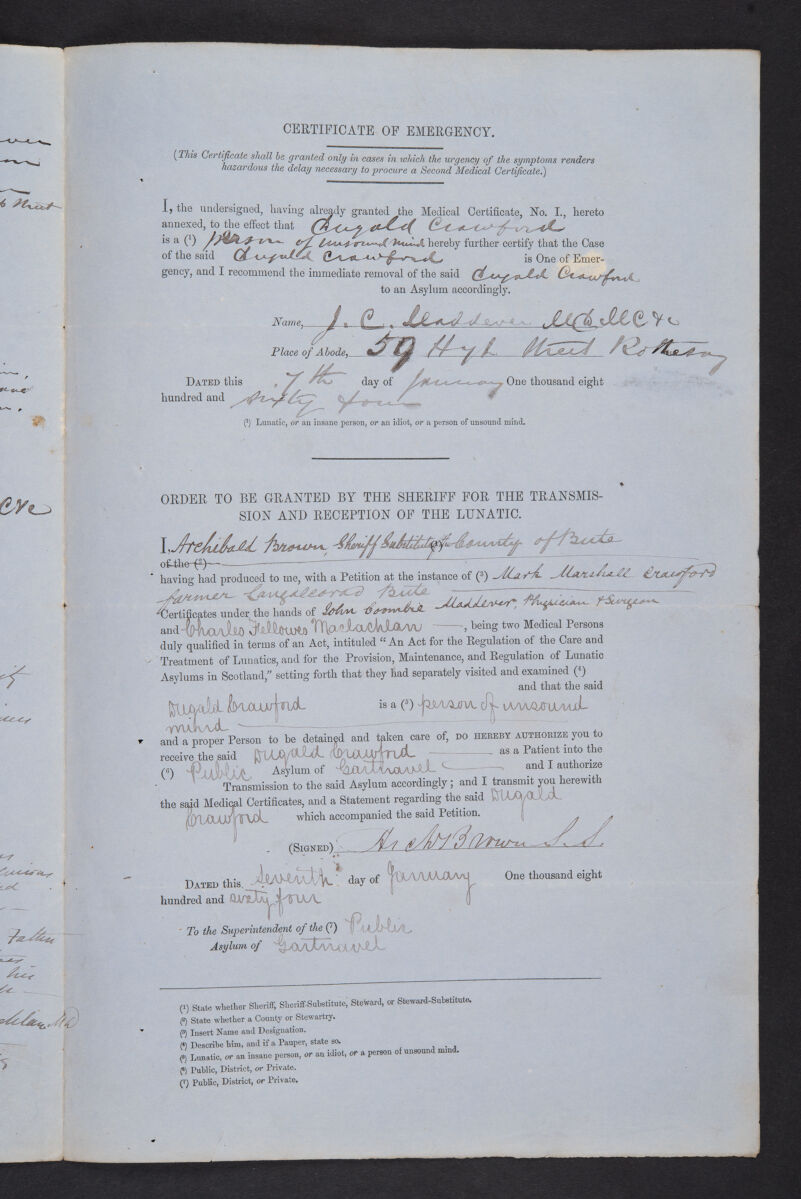 CERTIFICATE OF EMERGENCY.
(This Certificate shall be granted only in cases in which the urgency of the symptoms renders
hazardous the delay necessary to procure a Second Medical Certificate.)
I, the undersigned, having already granted the Medical Certificate, No. I., hereto
annexed, to the effect that Dugald Crawford
is a (¹) person of unsound mind hereby further certify that the Case
of the said Dugald Crawford is One of Emer-
gency, and I recommend the immediate removal of the said Dugald Crawford
to an Asylum accordingly.
Name, J. C. Maddever MD MC &c
Place of Abode, 59 High Street Rothesay
DATED this 7th day of January One thousand eight
hundred and sixty four
(¹) Lunatic, or an insane person, or an idiot, or a person of unsound mind.
ORDER TO BE GRANTED BY THE SHERIFF FOR THE TRANSMIS-
SION AND RECEPTION OF THE LUNATIC.
I, Archibald Brown, Sheriff Substitute of County of Bute
of the (²)
having had produced to me, with a Petition at the instance of (³) Mark Marshall Crawford
farmer Bute
Certificates under the hands of John Coombe Maddever, Physician & Surgeon
and Charles Fellowes Maclachlan, being two Medical Persons
duly qualified in terms of an Act, intituled "An Act for the Regulation of the Care and
Treatment of Lunatics, and for the Provision, Maintenance, and Regulation of Lunatic
Asylums in Scotland," setting forth that they had separately visited and examined (⁴)
and that the said
Dugald Crawford is a (⁵) person of unsound
mind
and a proper Person to be detained and taken care of, DO HEREBY AUTHORIZE you to
receive the said Dugald Crawford as a Patient into the
(⁶) Public Asylum of Gartnavel and I authorize
Transmission to the said Asylum accordingly; and I transmit you herewith
the said Medical Certificates, and a Statement regarding the said Dugald
Crawford which accompanied the said Petition.
(SIGNED) Arch Brown S.S.
DATED this Seventh day of January One thousand eight
hundred and sixty four
To the Superintendent of the (⁷) Public
Asylum of Gartnavel
(¹) State whether Sheriff, Sheriff-Substitute, Steward, or Steward-Substitute.
(²) State whether a County or Stewartry.
(³) Insert Name and Designation.
(⁴) Describe him, and if a Pauper, state so.
(⁵) Lunatic, or an insane person, or an idiot, or a person of unsound mind.
(⁶) Public, District, or Private.
(⁷) Public, District, or Private.